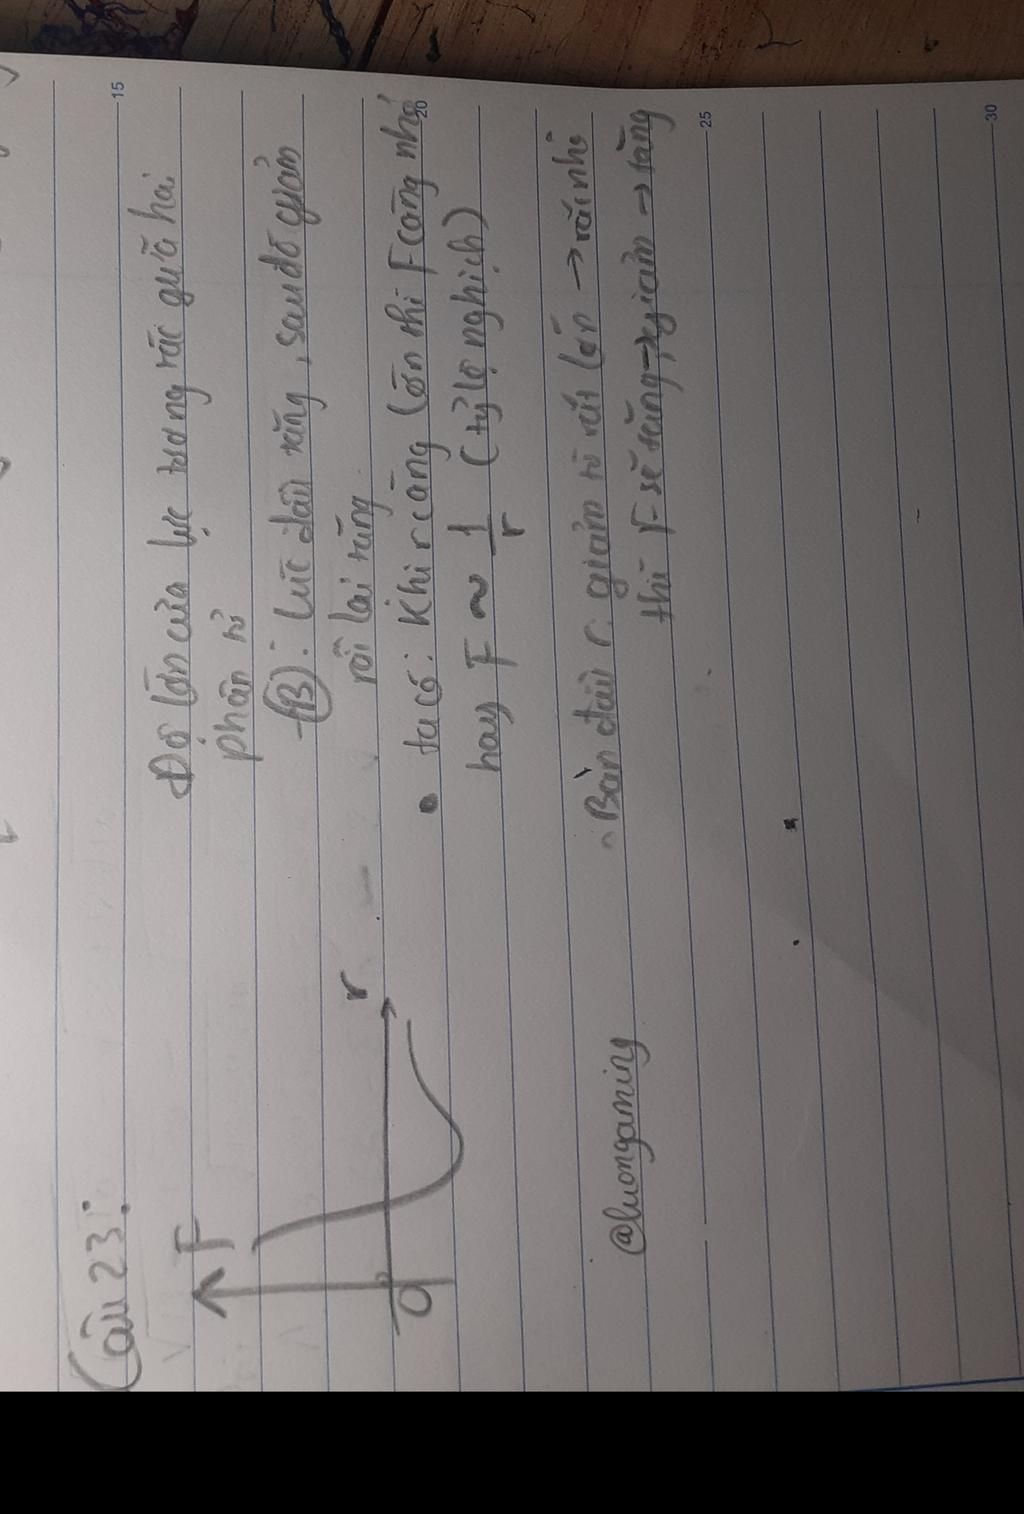 Câu 23:
F
r
O
Độ lớn của lực tương tác giữa hai
phân tử
(B): Lúc đầu tăng, sau đó giảm
rồi lại tăng
• ta có: Khi r càng lớn thì F càng nhỏ
hay F ~ 1/r (tỷ lệ nghịch)
Bán đầu r: giảm từ rất lớn → rất nhỏ
thì F sẽ tăng → giảm → tăng
@luongaming
15
20
25
30